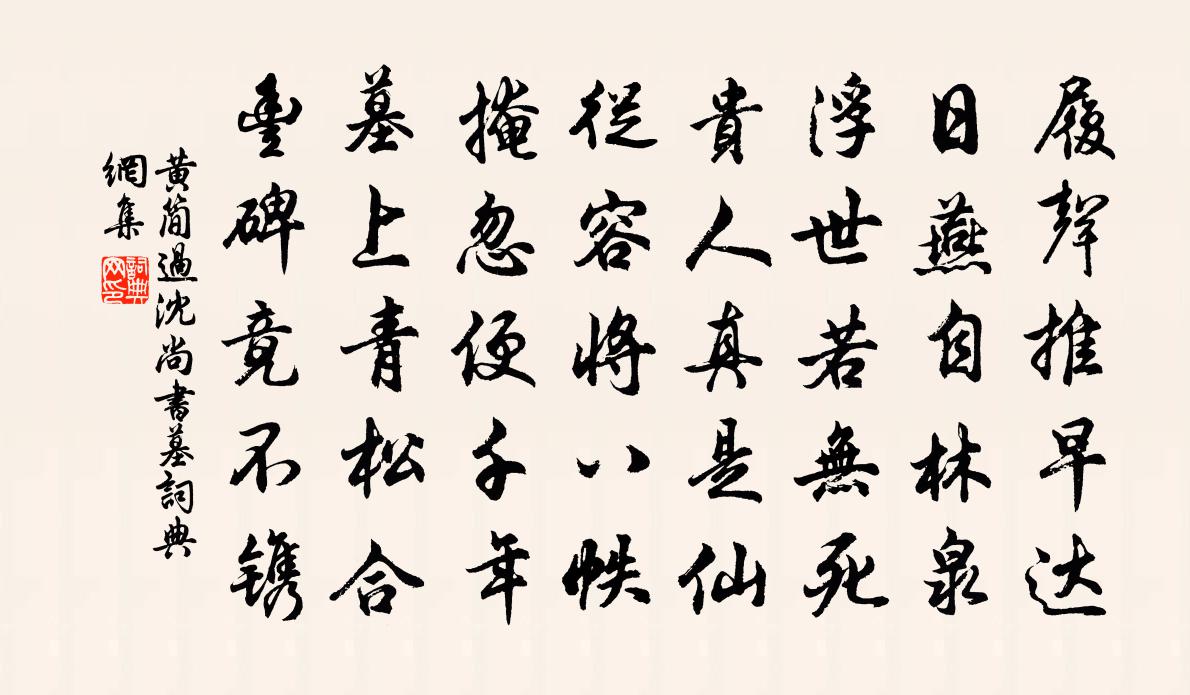 履聲推早达
日燕自林泉
浮世若無死
貴人真是仙
從容將八帙
掩忽便千年
墓上青松合
豊碑竟不镌
黄簡過沈尚書墓詞典
網集
詞典
网印